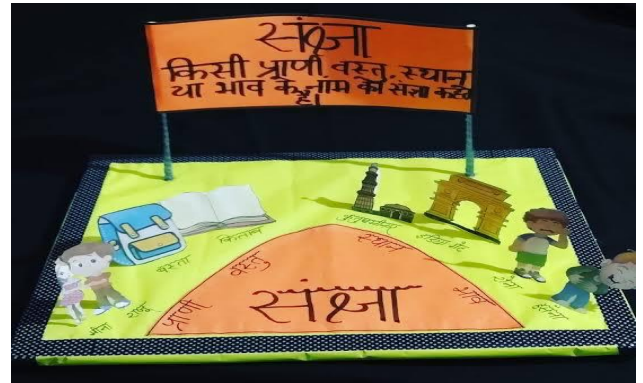 संज्ञा
किसी प्राणी, वस्तु, स्थान
या भाव के नाम को संज्ञा कहते
हैं।
बस्ता
किताब
कुतुबमीनार
इंडिया गेट
प्राणी
वस्तु
स्थान
भाव
संज्ञा
मीना
राजू
रोना
हंसना